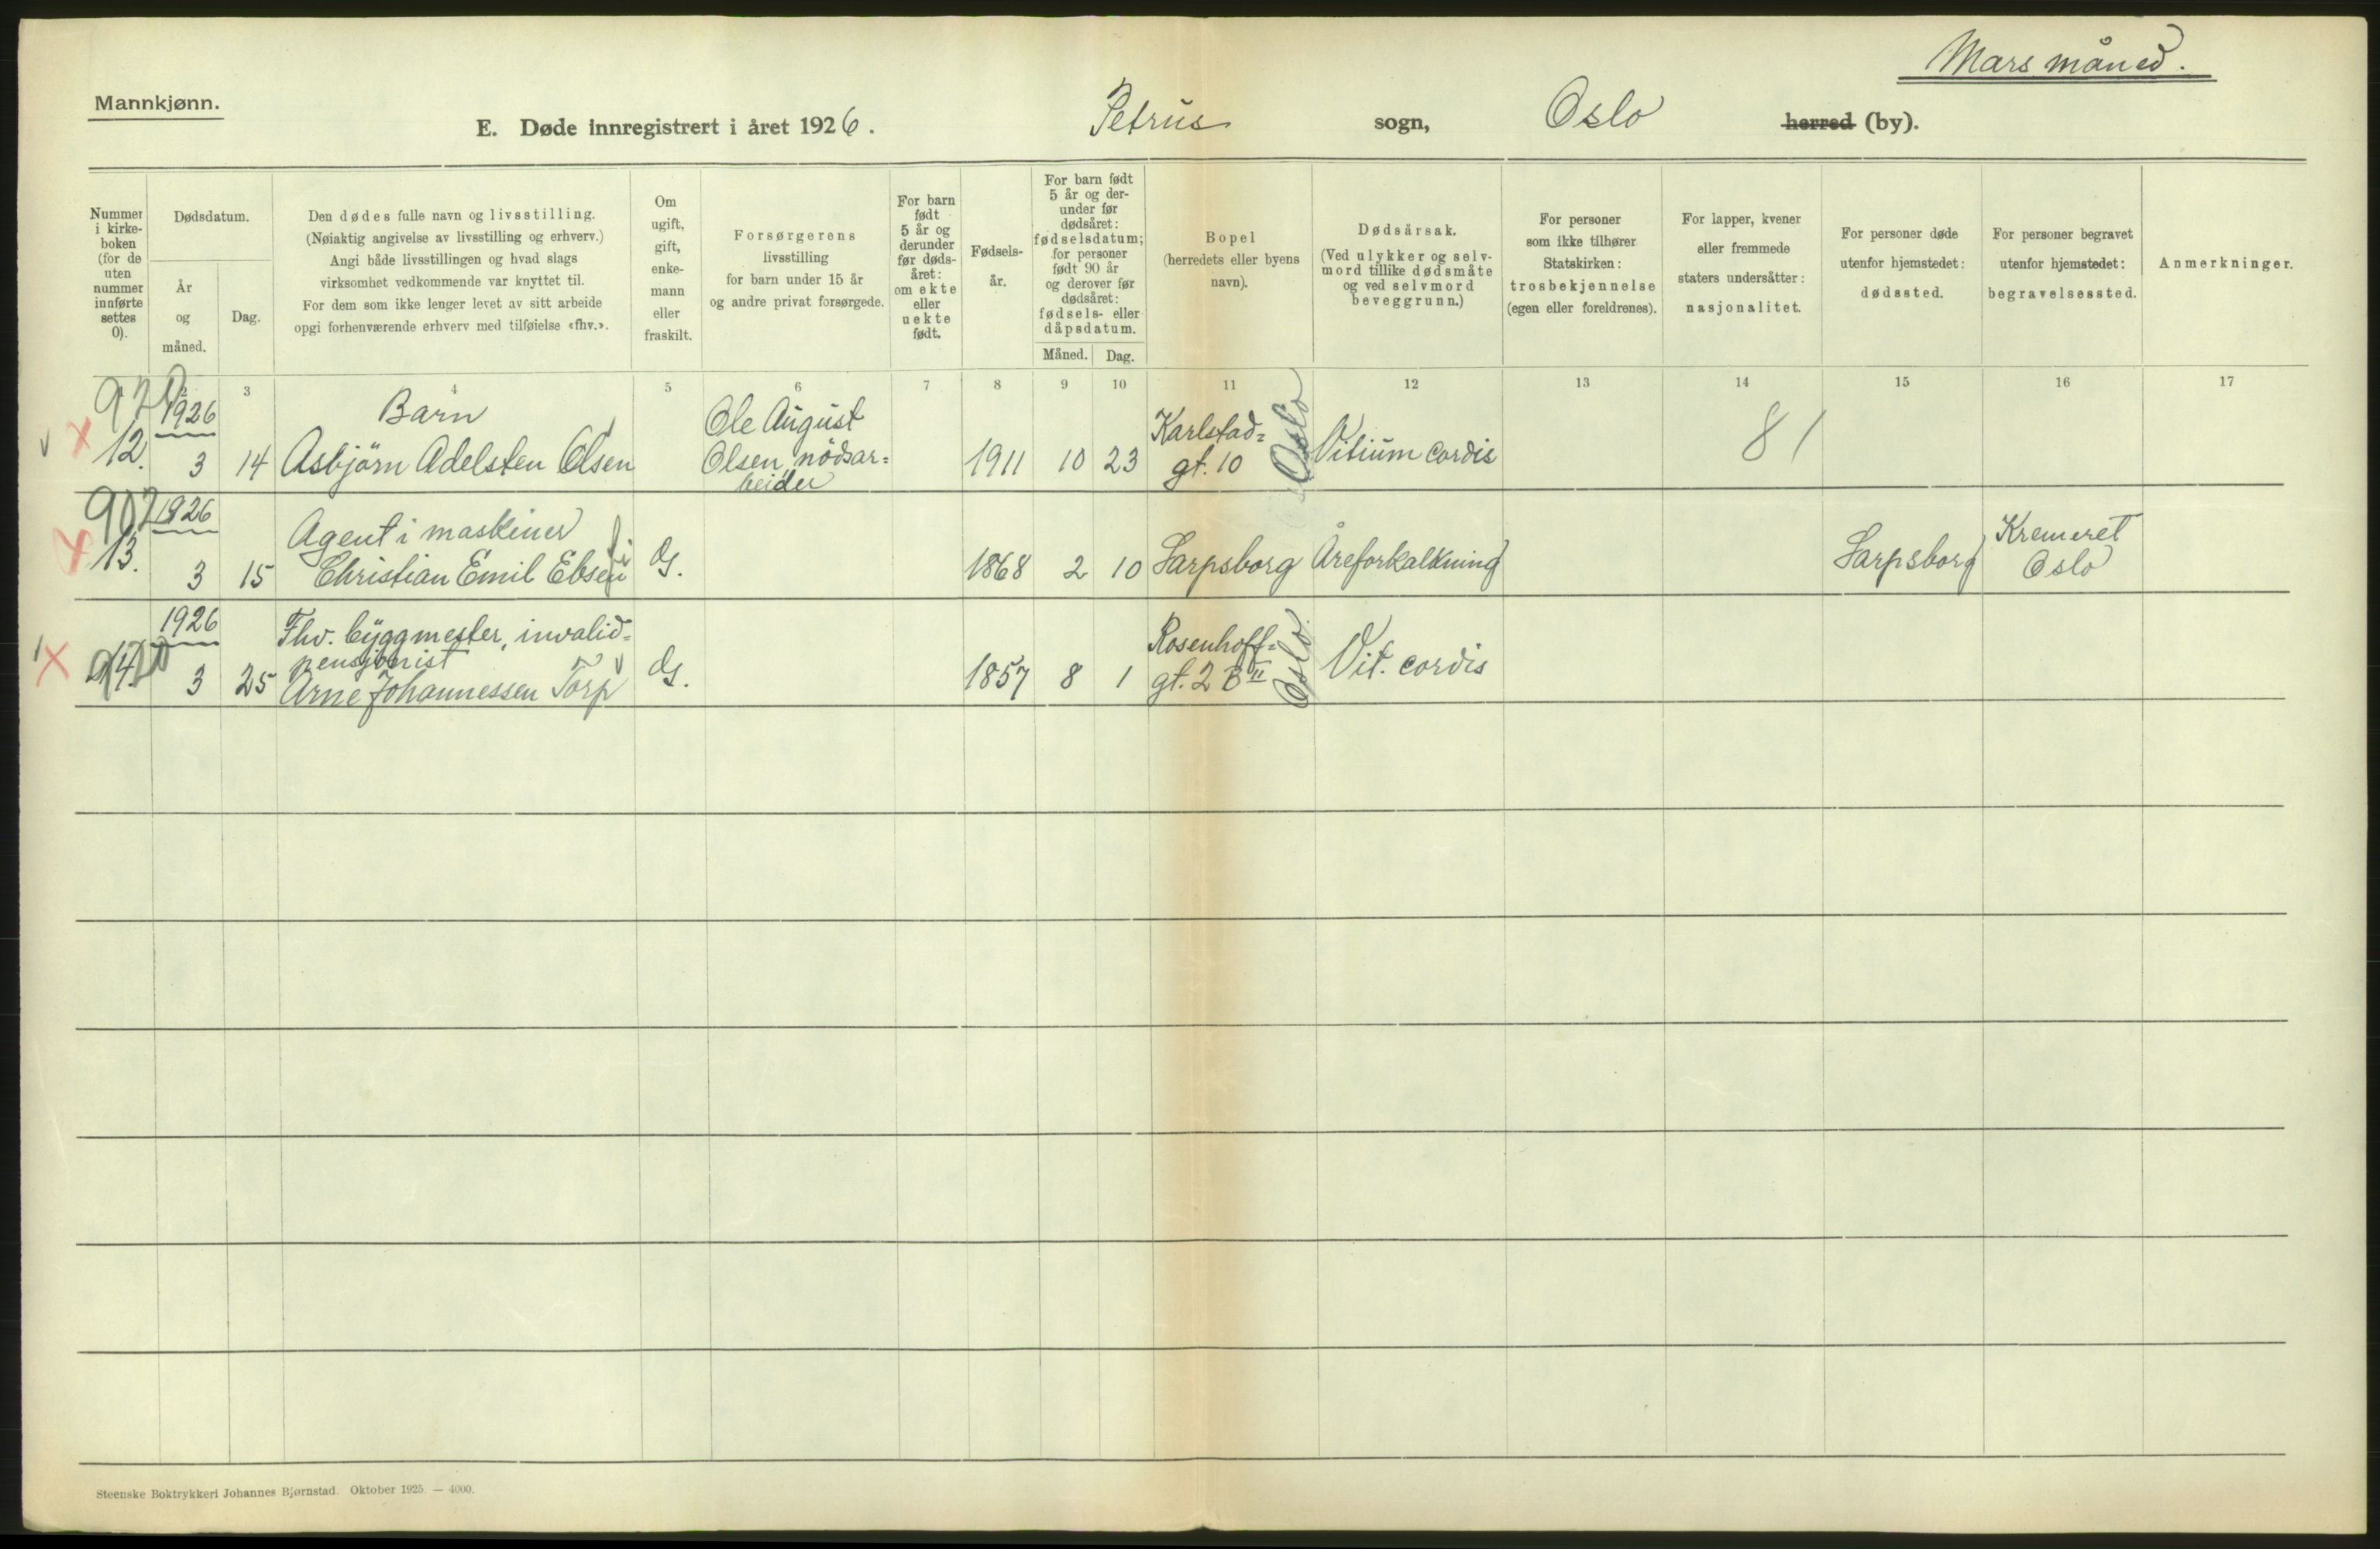 Mars måned.
Mannkjønn.
E. Døde innregistrert i året 1926. Petrus sogn, Oslo herred (by).
Nummer i kirke-boken (for de uten nummer innførte settes 0).
Dødsdatum.
År og måned.
Dag.
Den dødes fulle navn og livsstilling.
(Nøiaktig angivelse av livsstilling og erhverv.)
Angi både livsstillingen og hvad slags
virksomhet vedkommende var knyttet til.
For dem som ikke lenger levet av sitt arbeide
opgi forhenværende erhverv med tilføielse «fhv.».
Om ugift, gift, enke-mann eller fraskilt.
Forsørgerens
livsstilling
for barn under 15 år
og andre privat forsørgede.
For barn født 5 år og derunder før døds-året: om ekte eller uekte født.
Fødsels-år.
For barn født 5 år og der-under før dødsåret: fødselsdatum; for personer født 90 år og derover før dødsåret: fødsels- eller dåpsdatum.
Måned. Dag.
Bopel
(herredets eller byens
navn).
Dødsårsak.
(Ved ulykker og selv-
mord tillike dødsmåte
og ved selvmord
beveggrunn.)
For personer
som ikke tilhører
Statskirken:
trosbekjennelse
(egen eller foreldrenes).
For lapper, kvener
eller fremmede
staters undersåtter:
nasjonalitet.
For personer døde
utenfor hjemstedet:
dødssted.
For personer begravet
utenfor hjemstedet:
begravelsessted.
Anmerkninger.
3 4 5 6 7 8 9 10 11 12 13 14 15 16 17
1926 Barn Ole August Karlstad=
12. 3 14 Asbjörn Adelsten Olsen Olsen, nödsar= 1911 10 23 gt. 10 Oslo Vitium cordis 81
beider
907 1926 Agent i maskiner Kremeret
13. 3 15 Christian Emil Ebsen G. 1868 2 10 Sarpsborg Åreforkalkning Sarpsborg Oslo
1926 Fhv. byggmester, invalid= Rosenhoff=
pensjonist
14. 3 25 Arne Johannessen Torp G. 1857 8 1 gt. 2 B II Oslo Vit. cordis
Steenske Boktrykkeri Johannes Bjørnstad. Oktober 1925. — 4000.